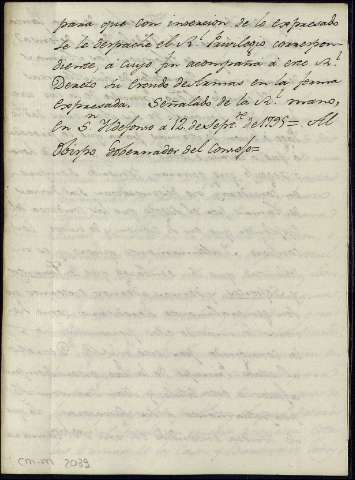 para que con insercion de lo expresado
se le despache el Rl. Privilegio correspon-
diente, a cuyo fin acompaña a este Rl.
Decreto su Escudo de Armas en la forma
expresada. Señalado de la Rl. mano,
en Sn. Ildefonso a 12. de Septre. de 1795= Al
Obispo Gobernador del Consejo=
CM-M 2039